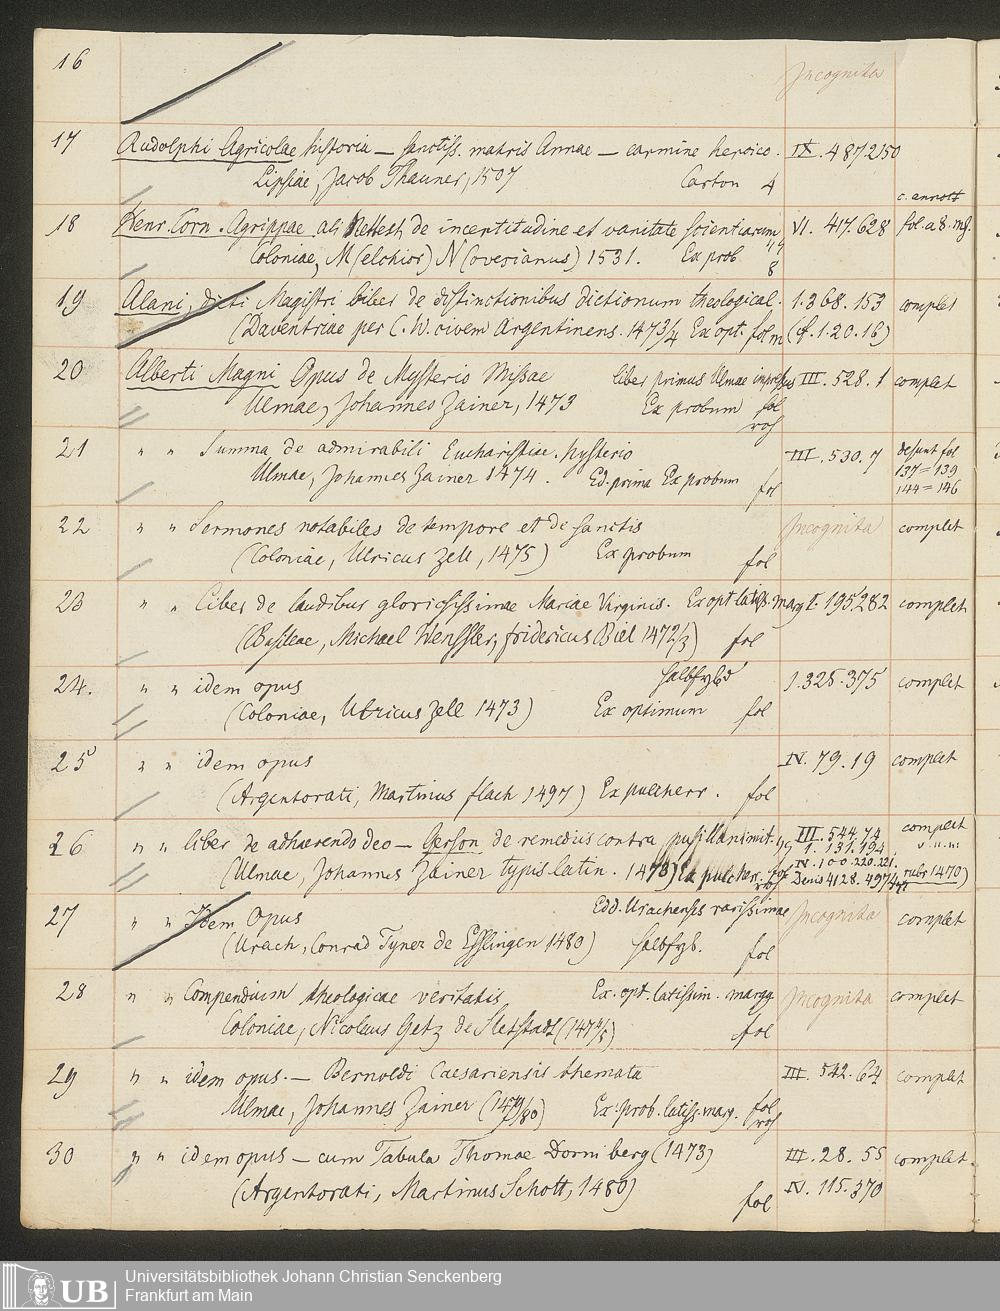 16 Incognita
17 Rudolphi Agricolae historia — sanctiss. matris Annae — carmine heroico. IX. 487 2150
Lipsiae, Jacob Thanner, 1507 Carton 4
c. annott
18 Henr. Corn. Agrippae ab Nettesh de incertitudine et vanitate scientiarum VI. 417. 628 fol. a 8. mg.
Coloniae, M(elchior) N(ovesianus) 1531. Ex prob 8
19 Alani, dicti Magistri liber de distinctionibus dictionum theological. 1. 368. 153 complet
(Daventriae per C. W. civem Argentinens. 1473/4 Ex opt. fol m (cf. 1. 20. 16)
20 Alberti Magni Opus de Mysterio Missae liber primus Ulmae impressus III. 528. 1 complet
Ulmae, Johannes Zainer, 1473 Ex probum fol
21 " " Summa de admirabili Eucharistiae Mysterio III. 530. 7 desunt fol
Ulmae, Johannes Zainer 1474. Ed. prima Ex probum fol 137 = 139
144 = 146
22 " " Sermones notabiles de tempore et de sanctis Incognita complet
(Coloniae, Ulricus Zell, 1475) Ex probum fol
23 " " Liber de laudibus gloriosissimae Mariae Virginis. Ex opt latiss. marg I. 195 282 complet
(Basileae, Michael Wenssler, fridericus Biel 1472/3) fol
24. " " idem opus 1. 325. 375 complet
(Coloniae, Ulricus Zell 1473) Ex optimum fol
25 " " idem opus IV. 79. 19 complet
(Argentorati, Martinus flach 1497) Ex pulcherr. fol
26 " " liber de adhaerendo deo — Gerson de remediis contra pusillanimit. III. 544. 74 complect
1. 131. 194
(Ulmae, Johannes Zainer typis latin. 1473) Ex pulcherr. fol IV. 100. 220. 221.
Denis 4128. 497 rubr 1470)
27 " " Idem Opus Edd. Urachensis rarissimae Incognita complet
(Urach, Conrad Fyner de Esslingen 1480) fol
28 " " Compendium theologicae veritatis Ex. opt. latissim. margg Incognita complet
Coloniae, Nicolaus Getz de Sletstadt (1474/5) fol
29 " " idem opus. — Bernoldi Caesariensis themata III. 542. 64 complet
Ulmae, Johannes Zainer (1479/80) Ex prob. latiss. marg. fol
30 " " idem opus — cum Tabula Thomae Dorniberg (1473) III. 28. 55 complet
(Argentorati, Martinus Schott, 1480) fol IV. 115. 370
UB Universitätsbibliothek Johann Christian Senckenberg
Frankfurt am Main